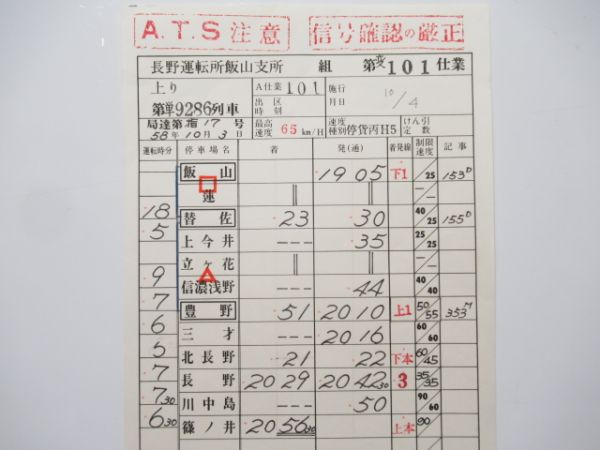 A.T.S 注意 信号確認の厳正
長野運転所飯山支所 組 第変101仕業
上り A仕業 101 施行月日 10/4
第単9286列車 出区時刻
局達第指17号 58年10月3日 最高速度 65km/H 速度種別 停貨丙H5 けん引定数
運転時分 停車場名 着 発(通) 着発線 制限速度 記事
飯山 19 05 下1 /25 153D
蓮 ‖ ‖ —/—
18 替佐 23 30 40/25 155D
5 上今井 --- 35 25/25
立ヶ花 ‖ ‖ —/—
9 信濃浅野 --- 44 40/40
7 豊野 51 20 10 上1 50/55 353M
6 三才 --- 20 16 60/60
5 北長野 21 22 下本 60/45
7 長野 20 29 20 42 30 3 35/35
7 30 川中島 --- 50 90/60
6 30 篠ノ井 20 56 30 上本 90/